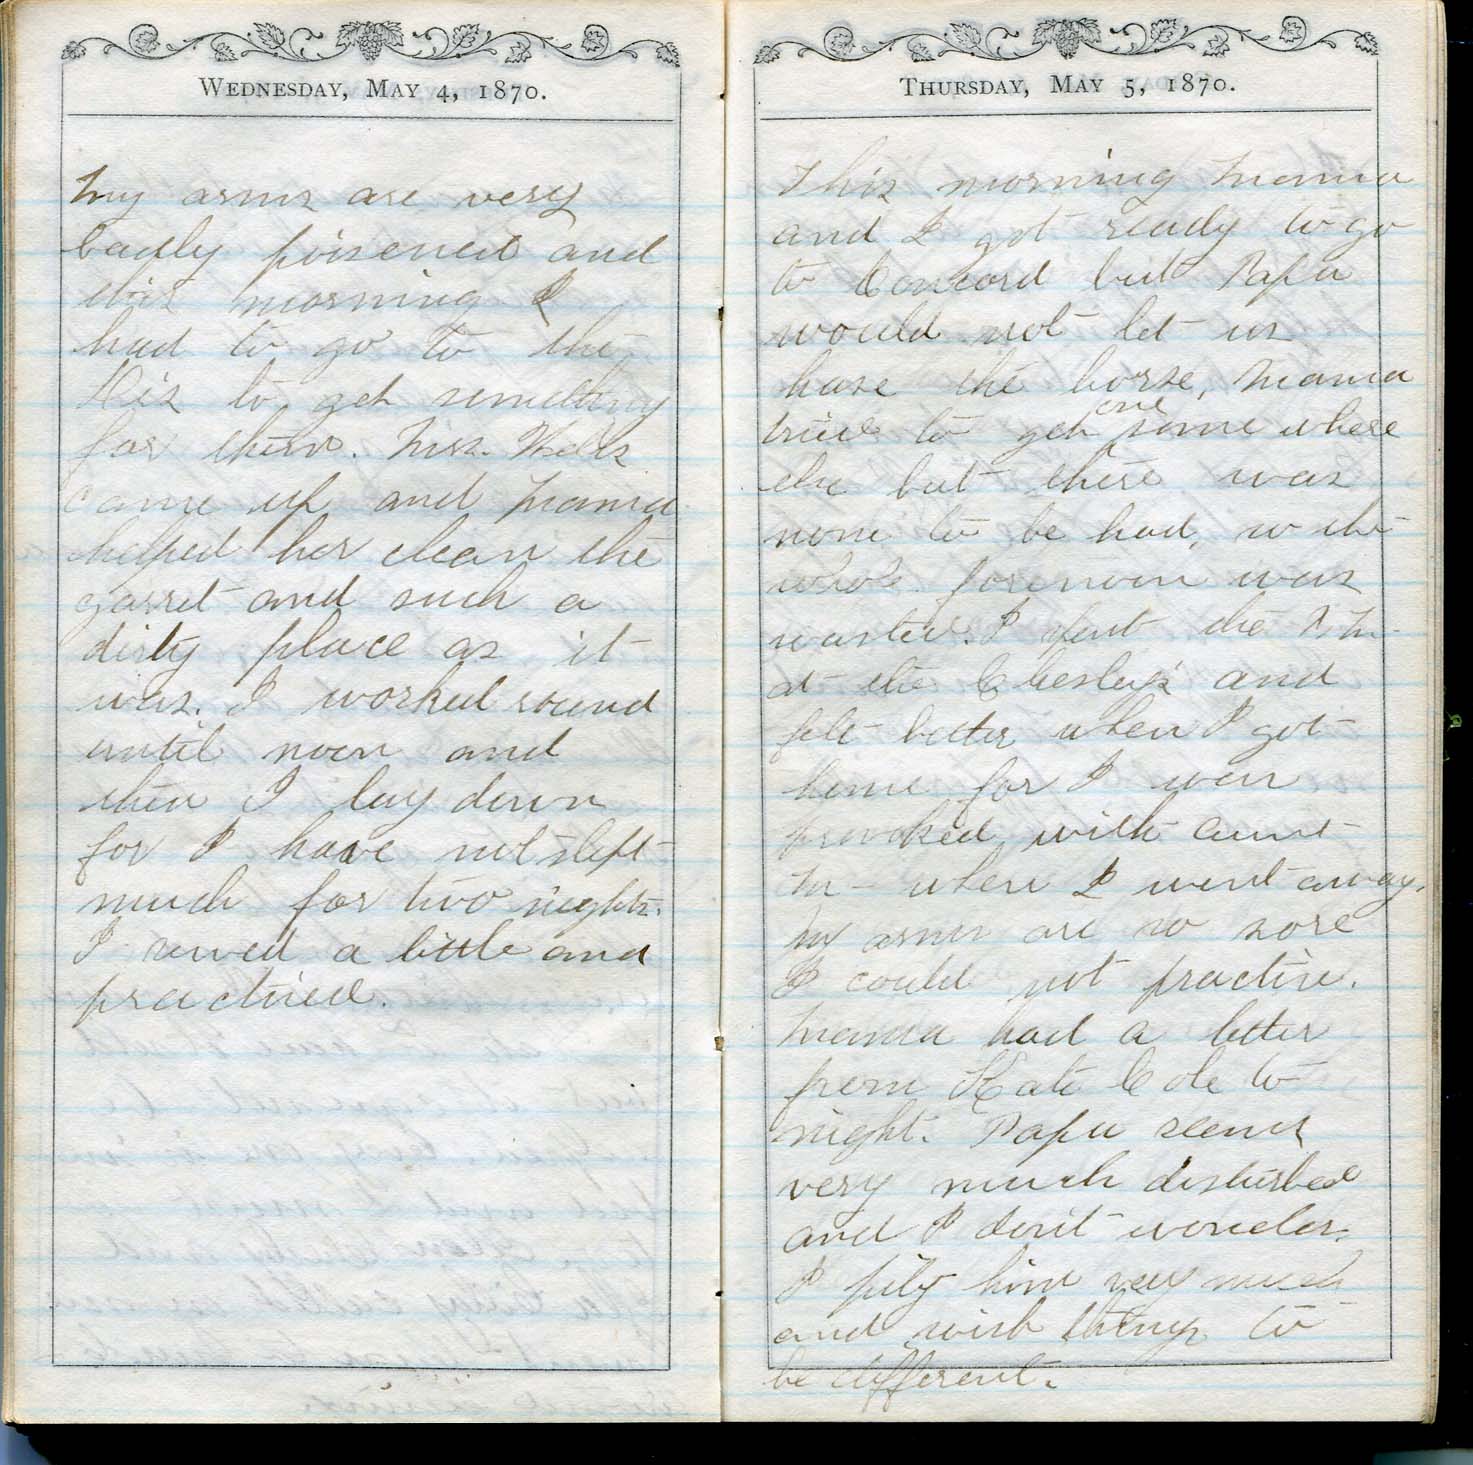 WEDNESDAY, MAY 4, 1870.
My arms are very
badly poisened and
this morning I
had to go to the
Drs to get something
for them. Mrs. Wells
came up and Mama
helped her clean the
garret and such a
dirty place as it
was. I worked round
until noon and
then I lay down
for I have not slept
much for two nights.
I sewed a little and
practised.
THURSDAY, MAY 5, 1870.
This morning Mama
and I got ready to go
to Concord but Papa
would not let us
have the horse, Mama
tried to get one some where
else but there was
none to be had, so the
whole forenoon was
wasted. I spent the P.M.
at the Chesley's and
felt better when I got
home for I was
provoked with Aunt
M- when I went away.
My arms are so sore
I could not practise.
Mama had a letter
from Kate Cole to
night. Papa seems
very much disturbed
and I don't wonder.
I pity him very much
and wish things to
be different.